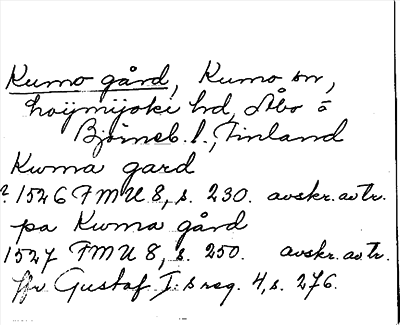 Kumo gård, Kumo sn,
hoijmijoki hd, Åbo o
Björneb. l., Finland
Kwma gard
? 1526 FMU 8, s. 230. avskr. av tr.
pa Kwma gård
1527 FMU 8, s. 250. avskr. av tr.
ffr Gustaf I:s reg. 4, s. 276.